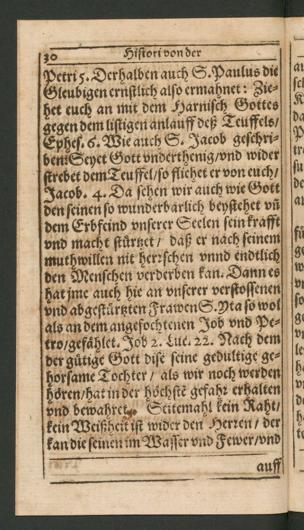 30 Histori von der
Petri 5. Derhalben auch S. Paulus die
Gleubigen ernstlich also ermahnet: Zie-
het euch an mit dem Harnisch Gottes
gegen dem listigen anlauff deß Teuffels/
Ephes. 6. Wie auch S. Jacob geschri-
ben: Seyet Gott vnderthenig/vnd wider
strebet dem Teuffel/so fliehet er von euch/
Jacob. 4. Da sehen wir auch wie Gott
den seinen so wunderbarlich beystehet vñ
dem Erbfeind vnserer Seelen sein krafft
vnd macht stürtzet/ daß er nach seinem
muthwillen nit herrschen vnnd endtlich
den Menschen verderben kan. Dann es
hat jme auch hie an vnserer verstossenen
vnd abgestürtzten Frawen S. Yta so wol
als an dem angefochtenen Job vnd Pe-
tro/gefählet. Job 2. Luc. 22. Nach dem
der gütige Gott dise seine gedultige ge-
horsame Tochter/ als wir noch werden
hören/hat in der höchstẽ gefahr erhalten
vnd bewahret. Seitemahl kein Raht/
kein Weißheit ist wider den Herren/ der
kan die seinen im Wasser vnd Fewer/vnd
auff